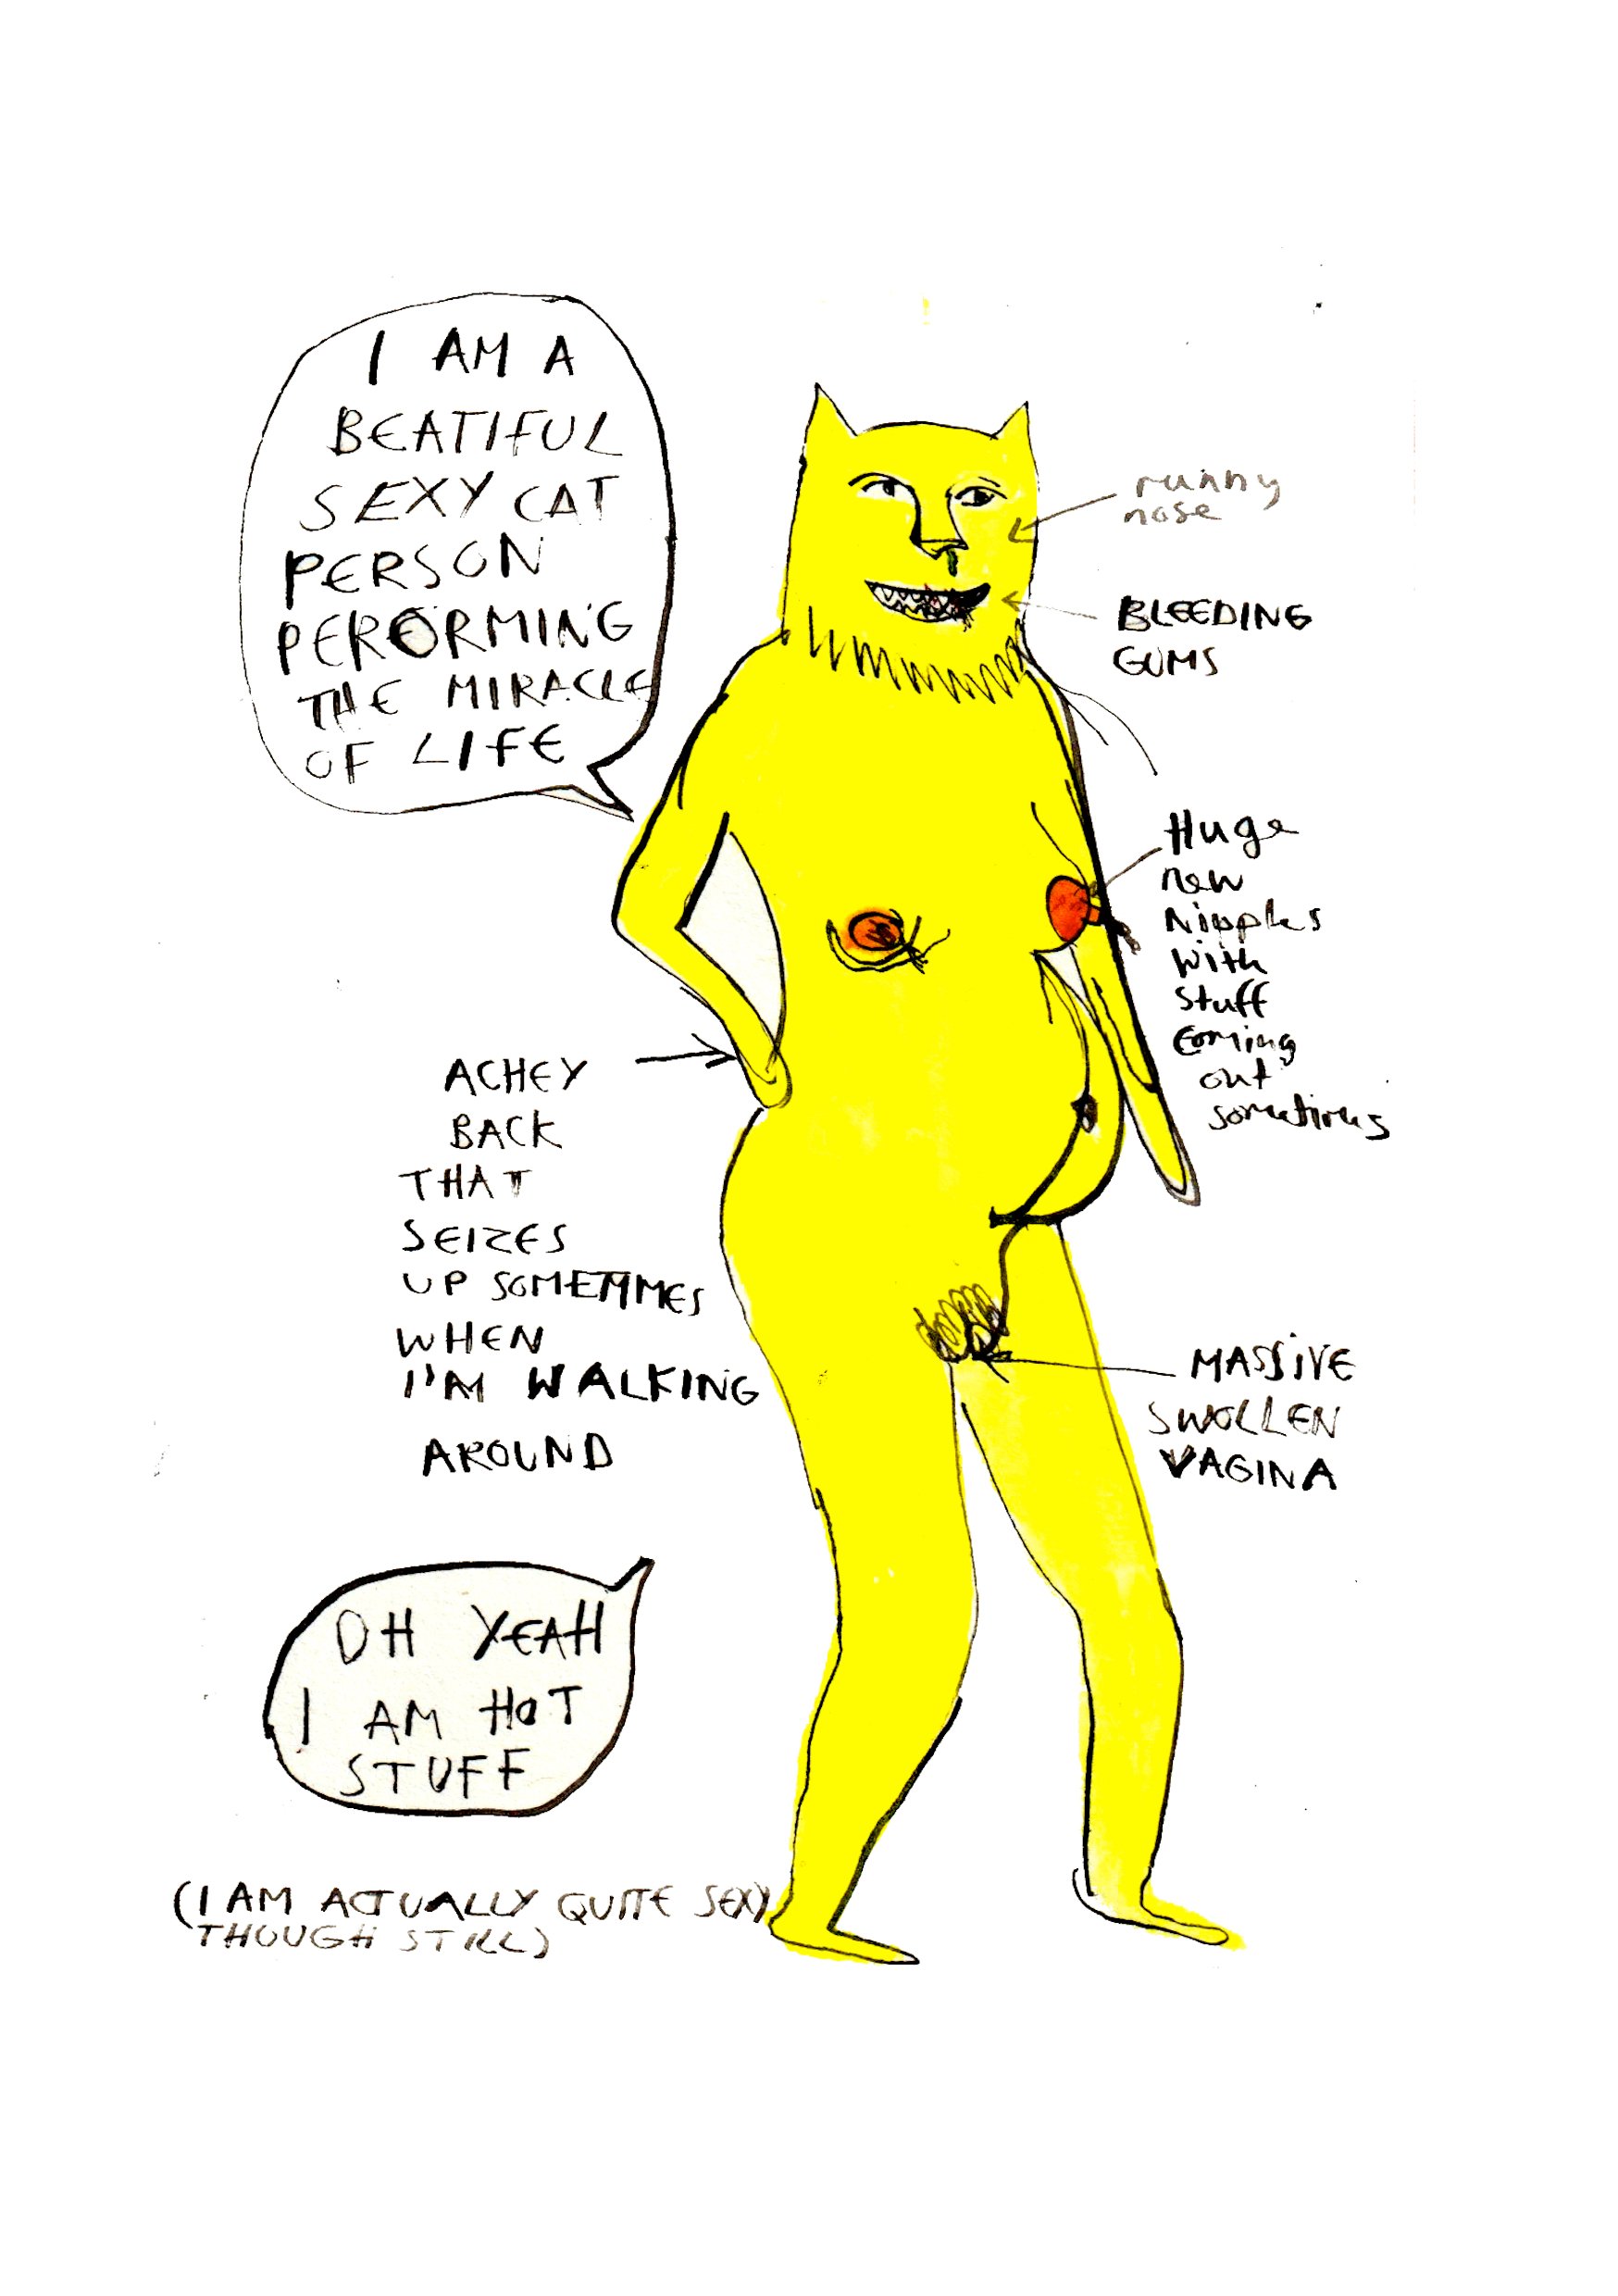 I AM A
BEATIFUL
SEXY CAT
PERSON
PERFORMING
THE MIRACLE
OF LIFE
runny
nose
BLEEDING
GUMS
Huge
new
Nipples
with
stuff
coming
out
sometimes
ACHEY
BACK
THAT
SEIZES
UP SOMETIMES
WHEN
I'M WALKING
AROUND
MASSIVE
SWOLLEN
VAGINA
OH YEAH
I AM HOT
STUFF
(I AM ACTUALLY QUITE SEXY
THOUGH STILL)